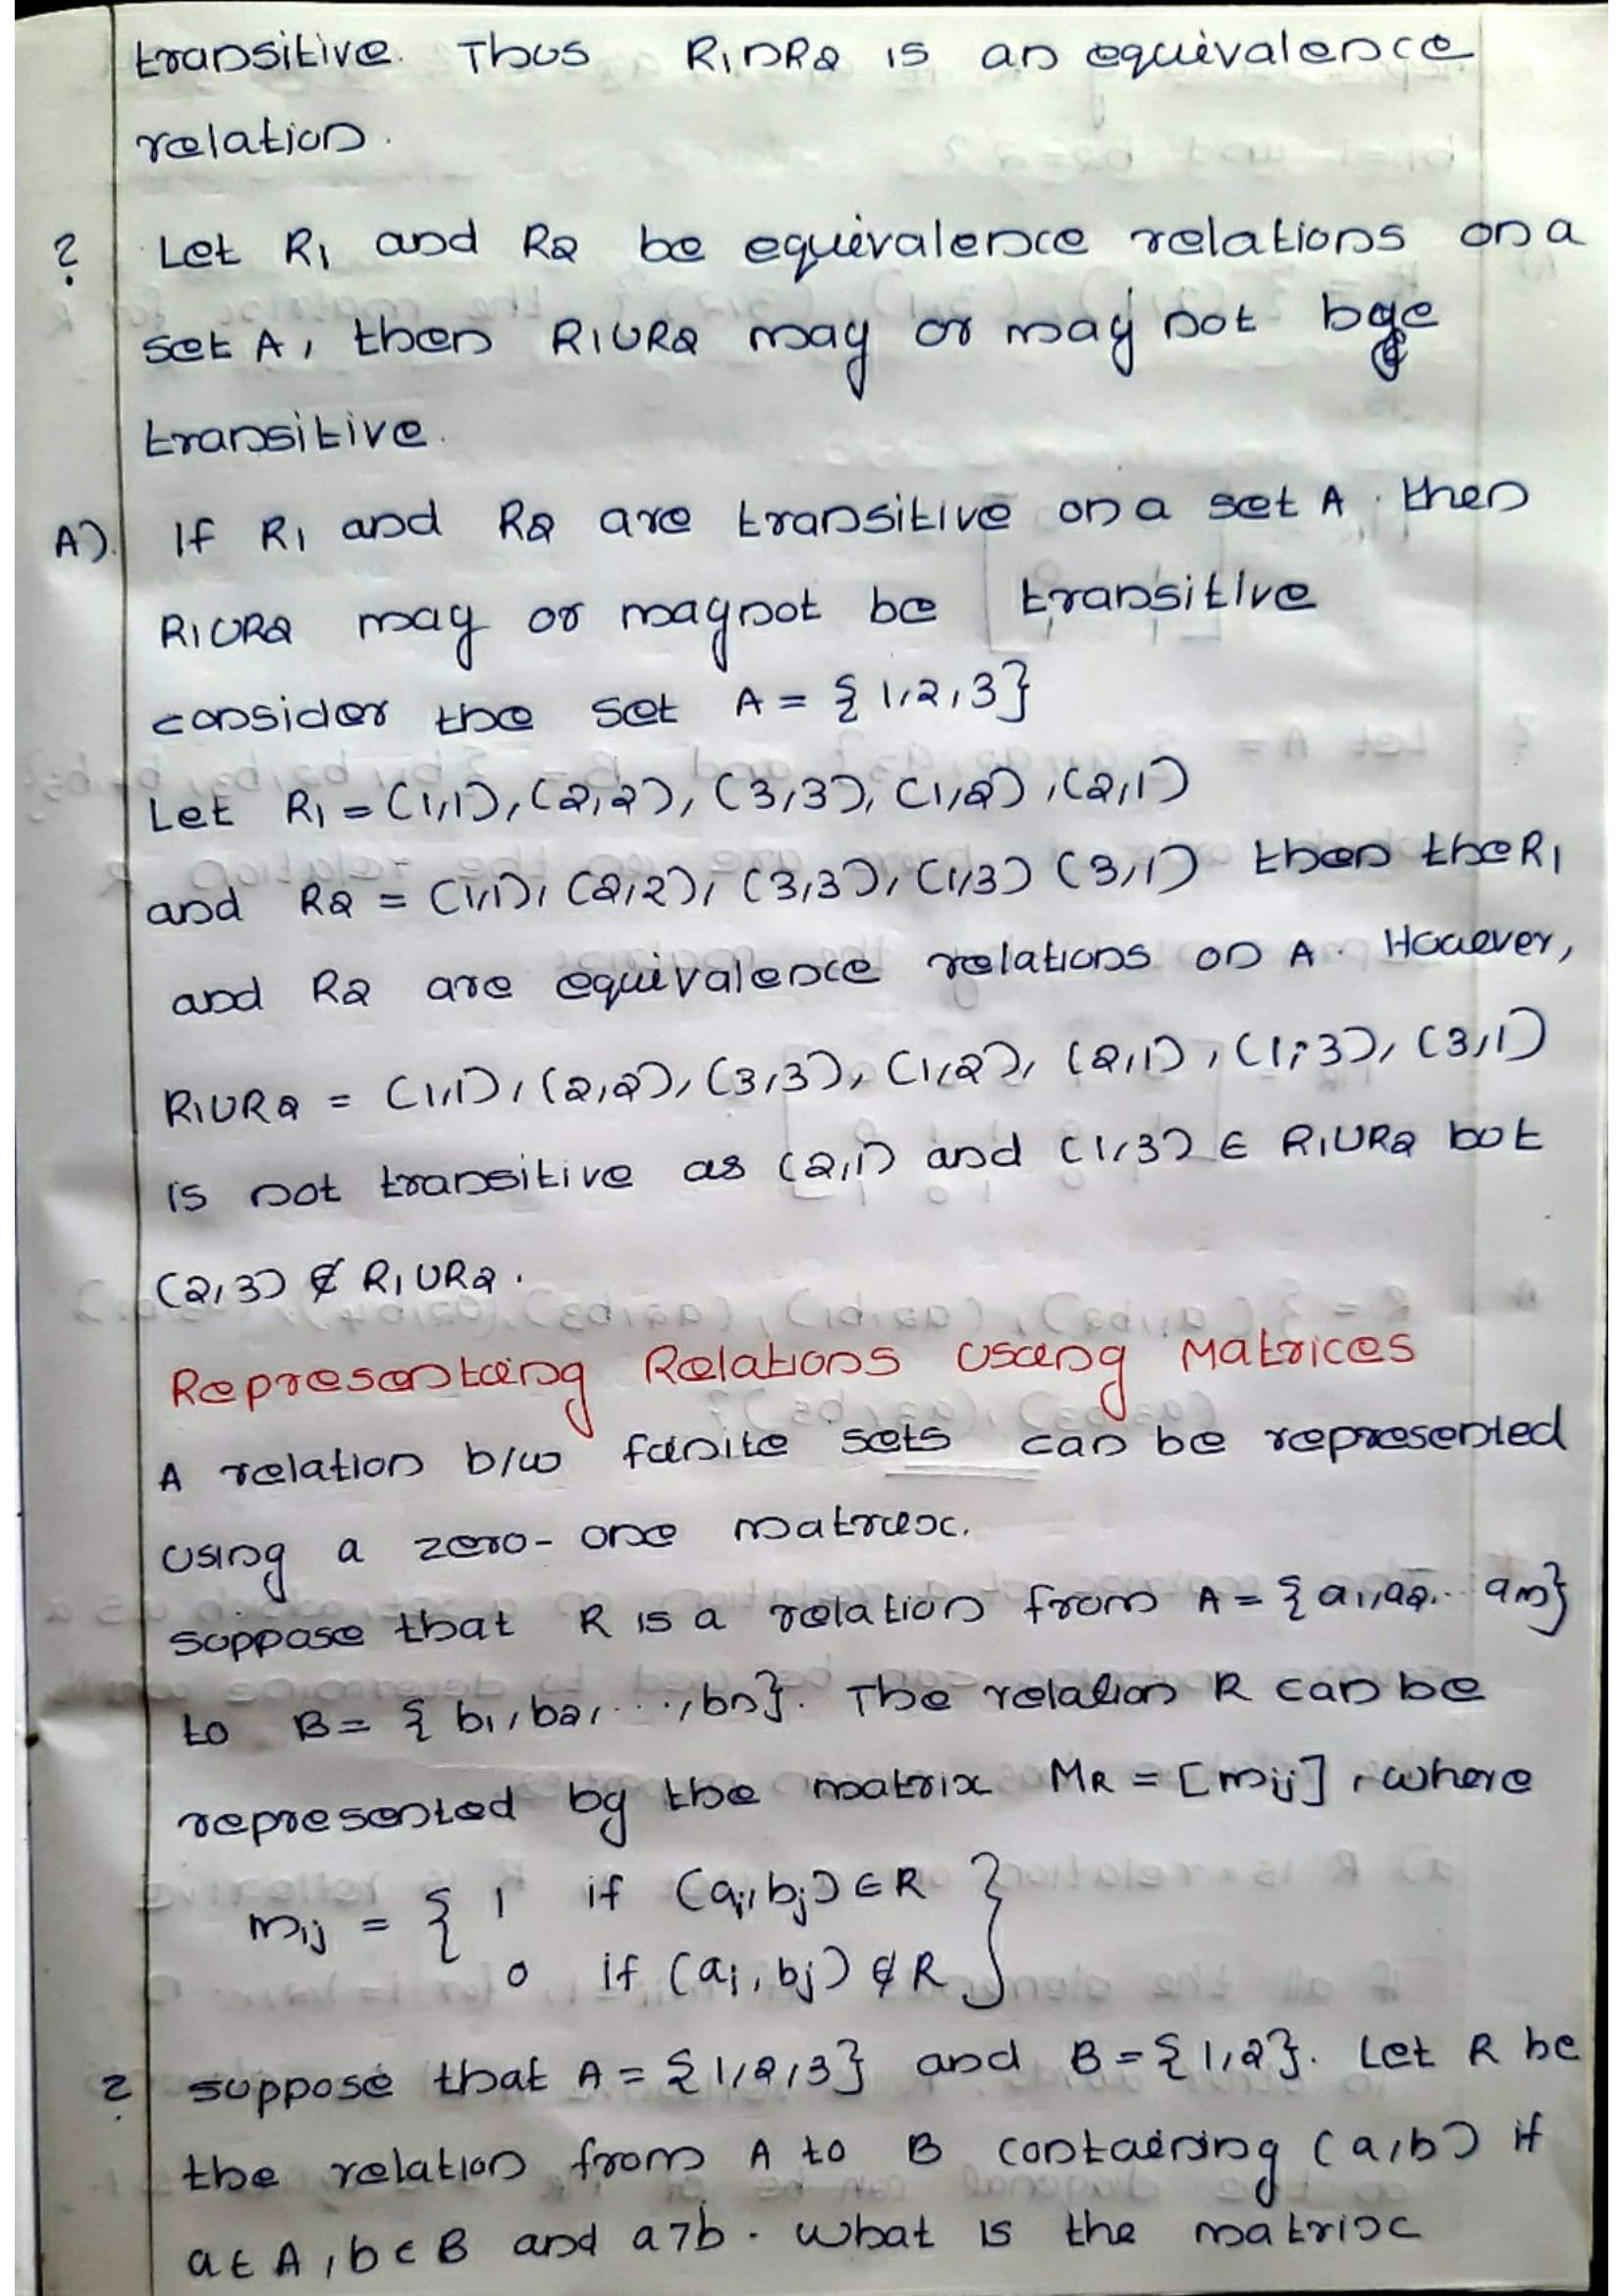 transitive. Thus R1∩R2 is an equivalence
relation.
? Let R1 and R2 be equivalence relations on a
set A, then R1UR2 may or may not be
transitive.
A). If R1 and R2 are transitive on a set A. then
R1UR2 may or maynot be transitive
consider the set A = {1,2,3}
Let R1 = (1,1), (2,2), (3,3), (1,2), (2,1)
and R2 = (1,1), (2,2), (3,3), (1,3) (3,1) then the R1
and R2 are equivalence relations on A. However,
R1UR2 = (1,1), (2,2), (3,3), (1,2), (2,1), (1,3), (3,1)
is not transitive as (2,1) and (1,3) ∈ R1UR2 but
(2,3) ∉ R1UR2.
Representing Relations Using Matrices
A relation b/w finite sets can be represented
using a zero-one matrix.
suppose that R is a relation from A = {a1,a2...am}
to B = {b1,b2,...,bn}. The relation R can be
represented by the matrix MR = [mij], where
mij = { 1 if (ai,bj) ∈ R }
0 if (ai,bj) ∉ R
? suppose that A = {1,2,3} and B = {1,2}. Let R be
the relation from A to B containing (a,b) if
a ∈ A, b ∈ B and a>b. what is the matrix